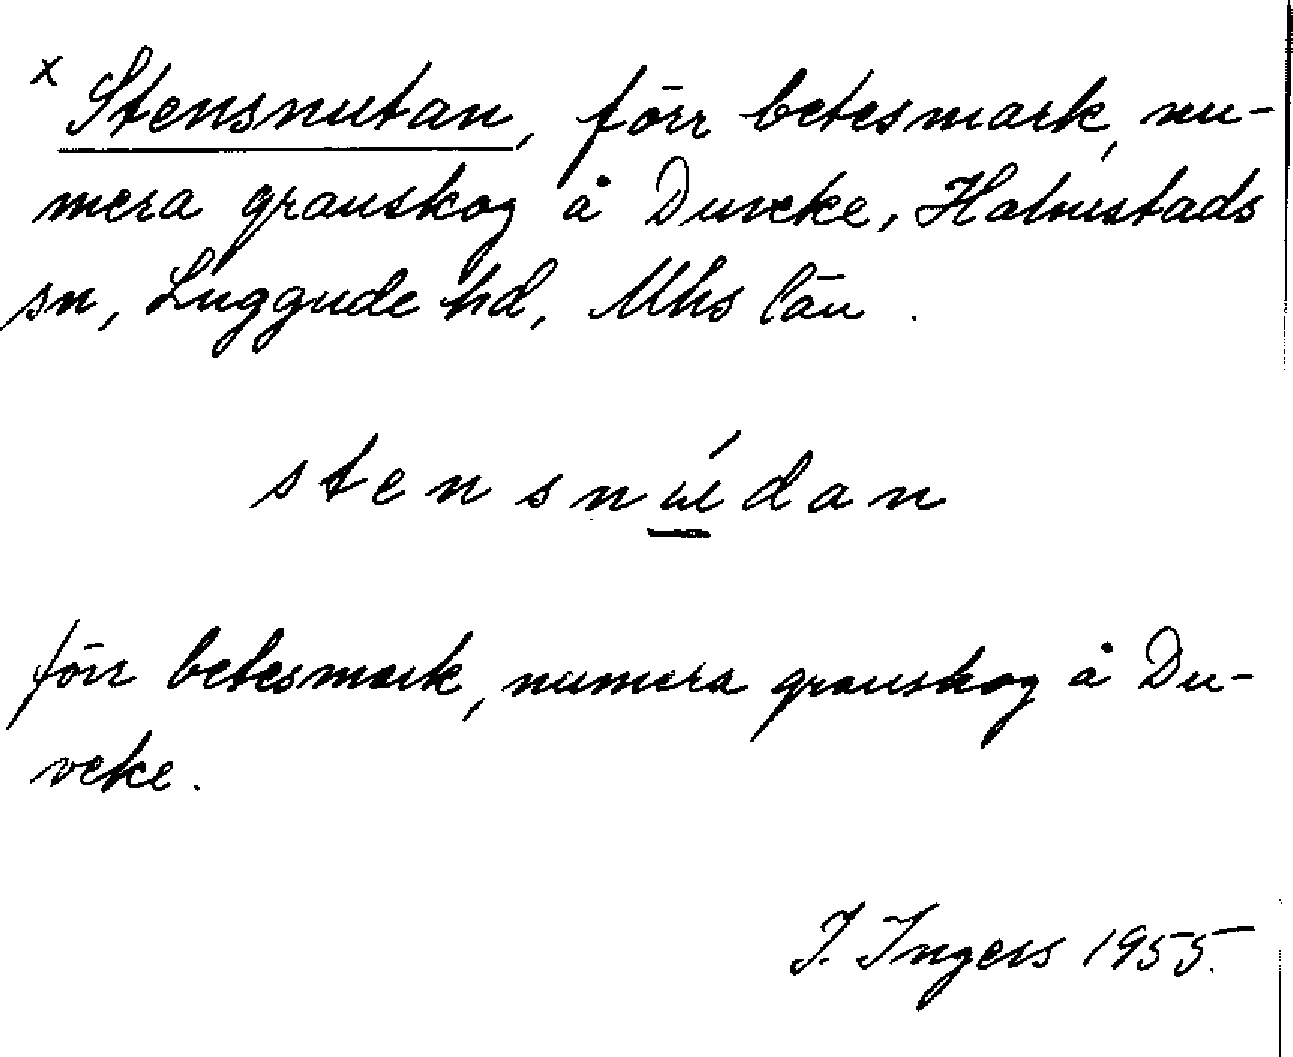 x Stensnutan, förr betesmark, nu-
mera granskog å Duveke, Halmstads
sn, Luggude hd, Mhs län.
stensnúdan
förr betesmark, numera granskog å Du-
veke.
I. Ingers 1955.